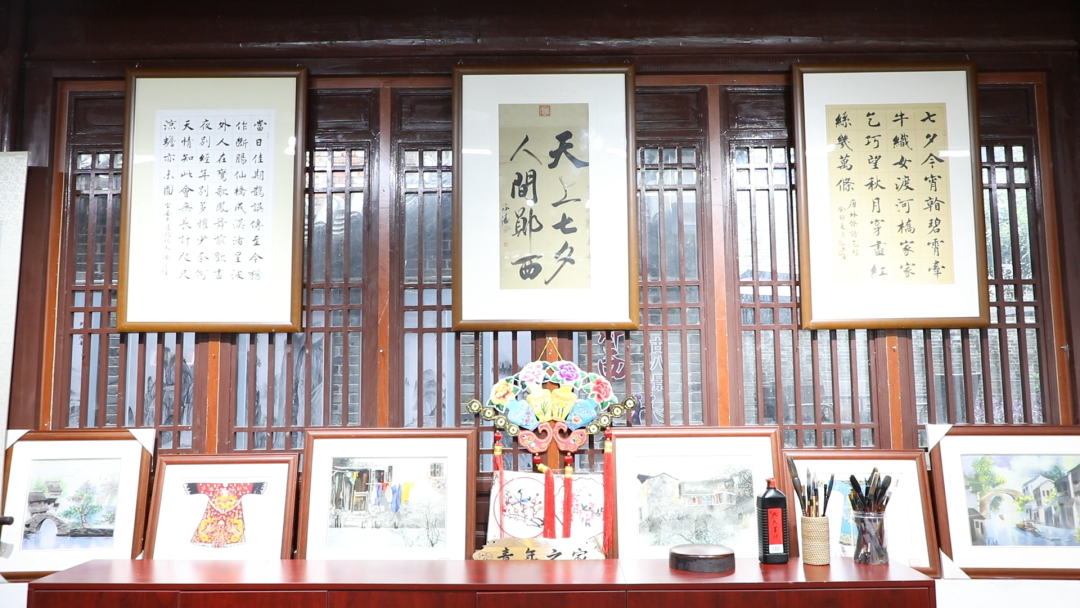 當日佳期鵲誤傳至今猶
作斷腸仙橋成漢渚星波
外人在鸞歌鳳舞前歡盡
夜別經年別多歡少奈何
天情知此會無長計咫尺
涼蟾亦未圓
天上七夕
人間鄖西
七夕今宵看碧霄牽
牛織女渡河橋家家
乞巧望秋月穿盡紅
絲幾萬條
青年之家